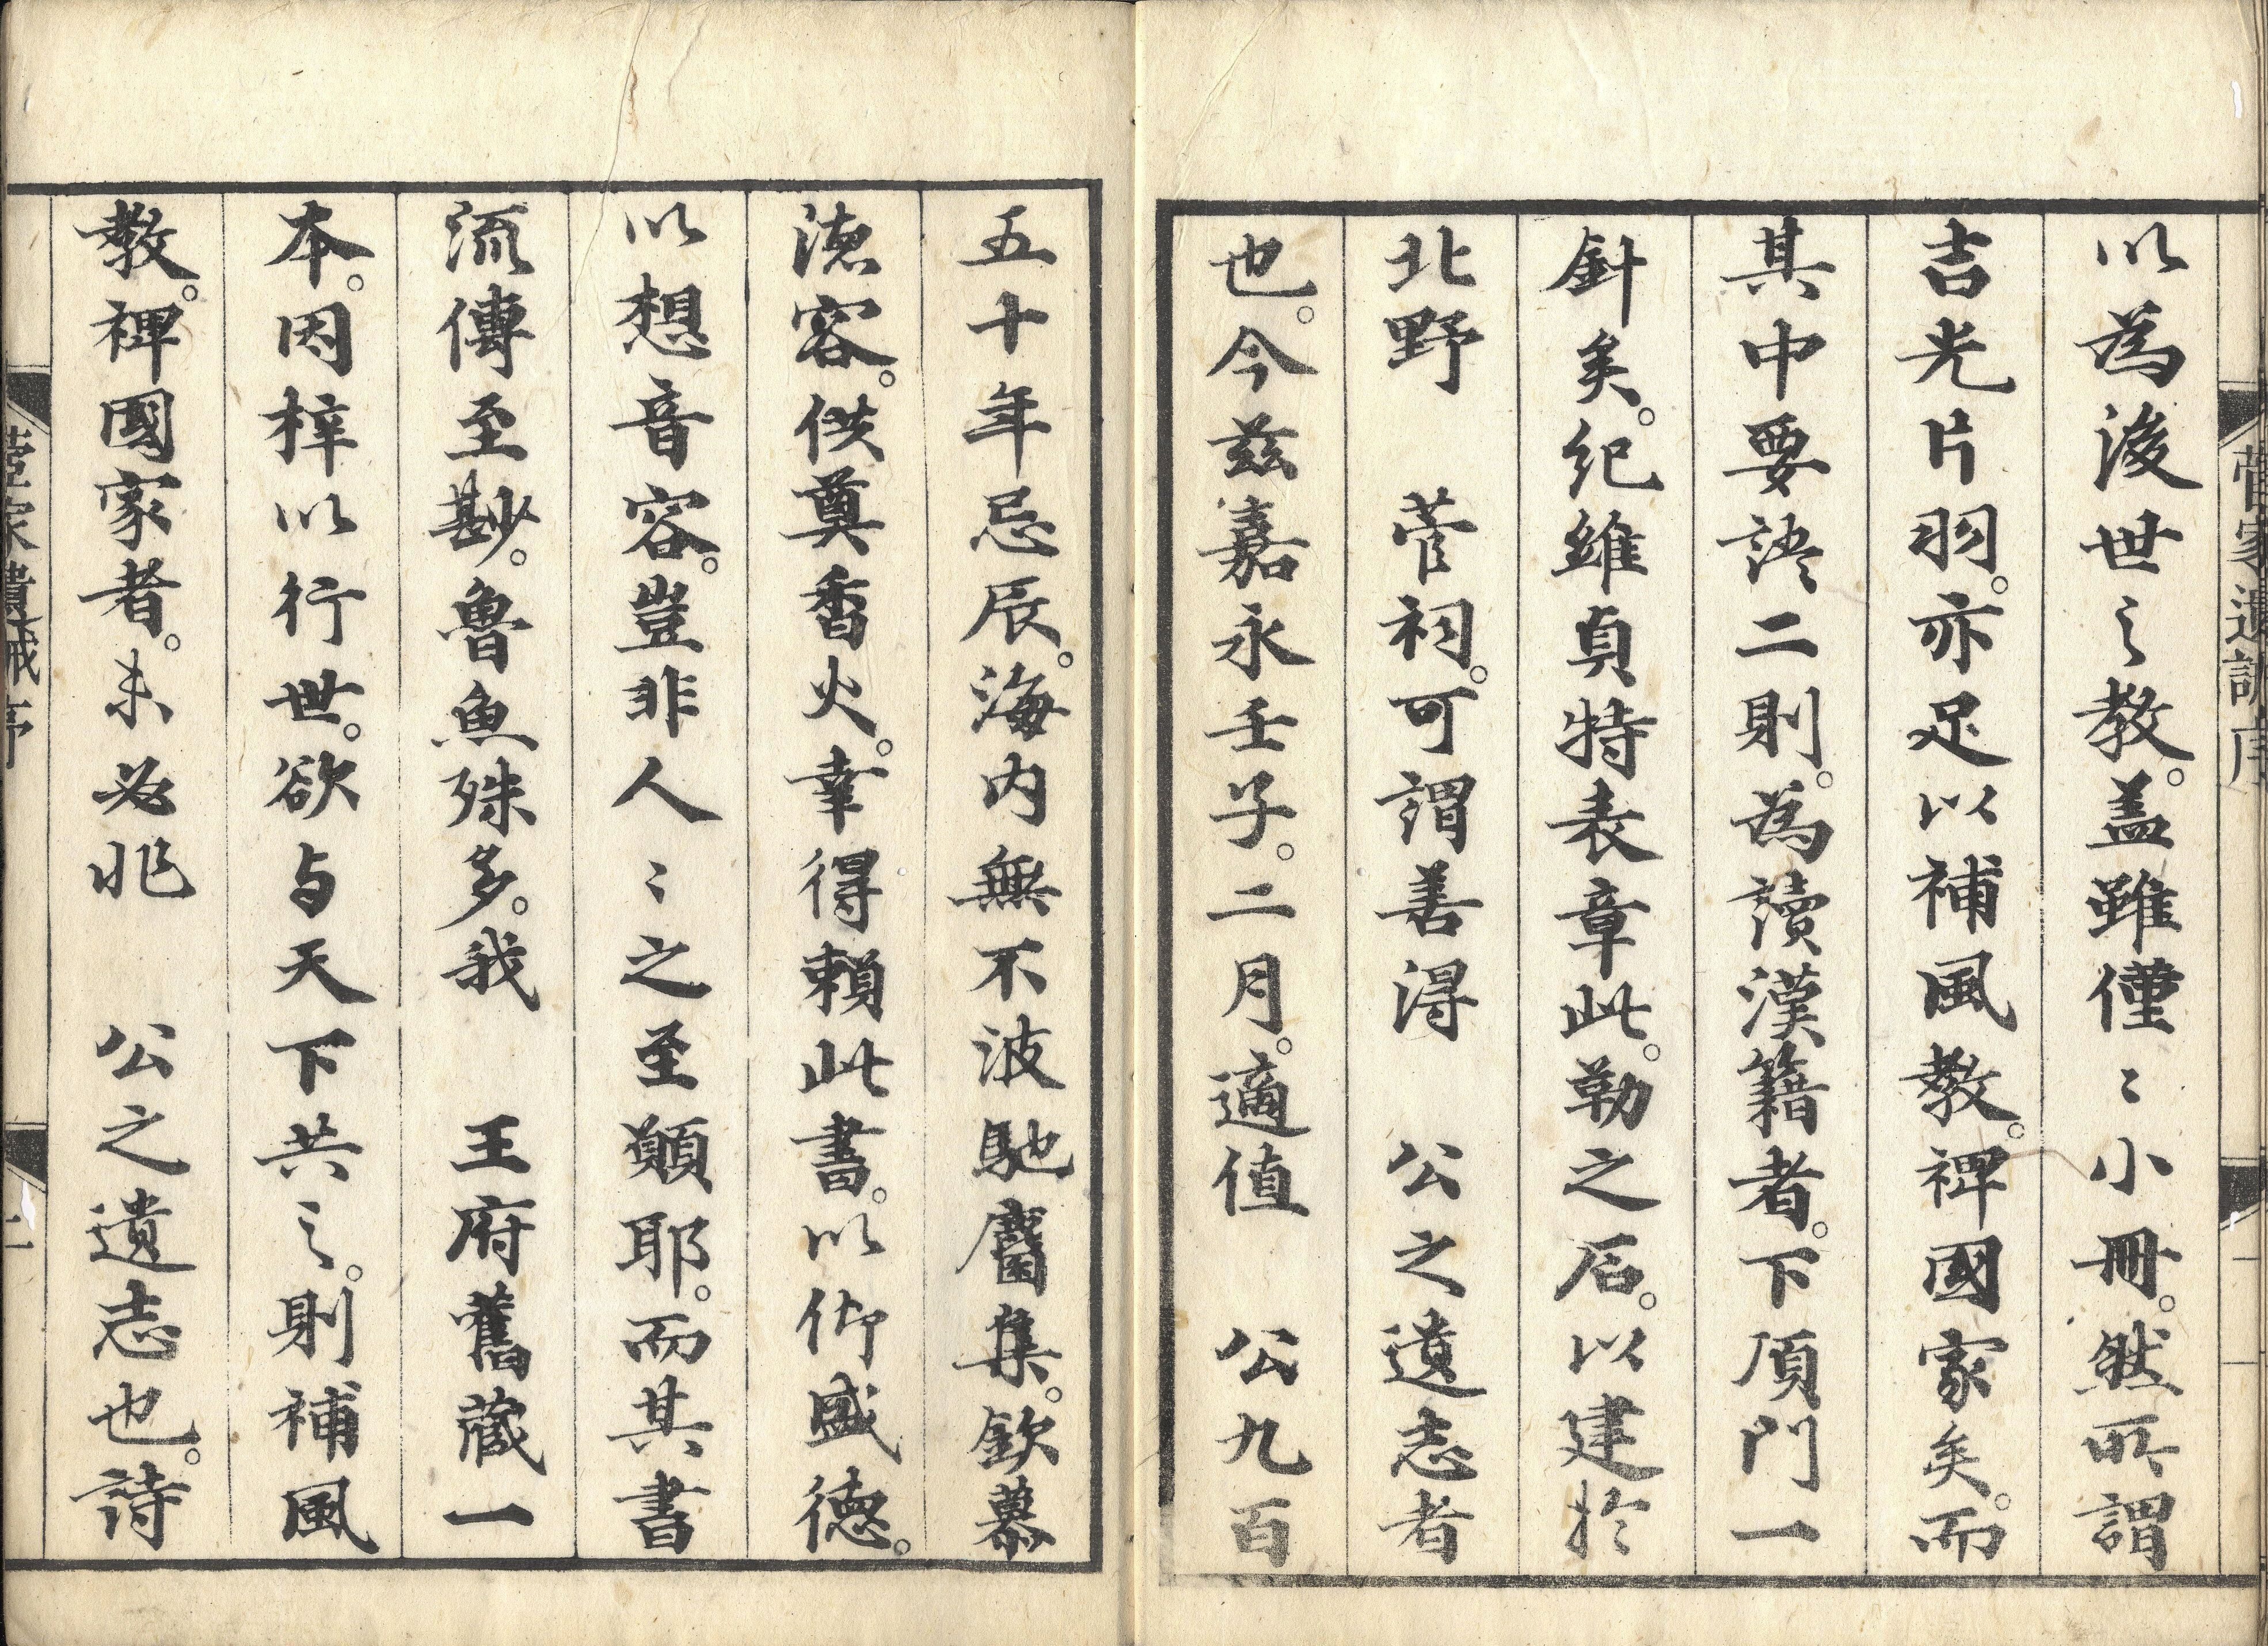 以為後世之教。盖雖僅〻小冊。然所謂
吉光片羽。亦足以補風教。裨國家矣。而
其中要語二則。為讀漢籍者。下頂門一
針矣。紀維貞特表章此。勒之石。以建於
北野　菅祠。可謂善得　公之遺志者
也。今茲嘉永壬子。二月。適值　公九百
五十年忌辰。海內無不波馳麕集。欽慕
德容。供奠香火。幸得賴此書。以仰盛德。
以想音容。豈非人〻之至願耶。而其書
流傳至尠。魯魚殊多。我　王府舊藏一
本。因梓以行世。欲与天下共之。則補風
教。裨國家者。未必非　公之遺志也。詩